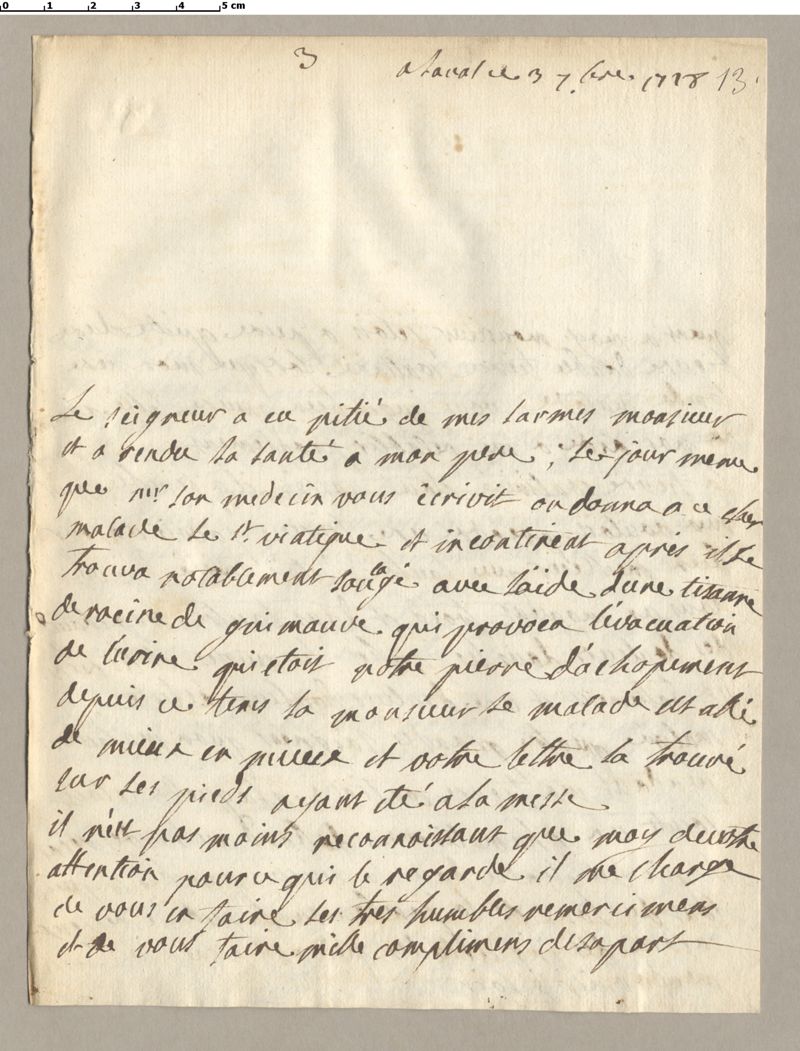 0 1 2 3 4 5 cm
3
a Laval ce 3 7.bre 1728 13.
Le seigneur a eu pitié de mes larmes monsieur
et a rendu la santé a mon pere ; le jour meme
que mr son medecin vous écrivit on donna a ce cher
malade le st viatique et incontinent apres il se
trouva notablement soulagé avec l'aide d'une tisanne
de racine de guimauve qui provoca l'évacuation
de l'urine qui etoit notre pierre d'achopement
depuis ce tems la monsieur le malade est allé
de mieux en mieux et votre lettre la trouvé
sur ses pieds ayant été a la messe
il n'est pas moins reconnoissant que moy de votre
attention pour ce qui le regarde il me charge
de vous en faire ses tres humbles remercimens
et de vous faire mille complimens de sa part